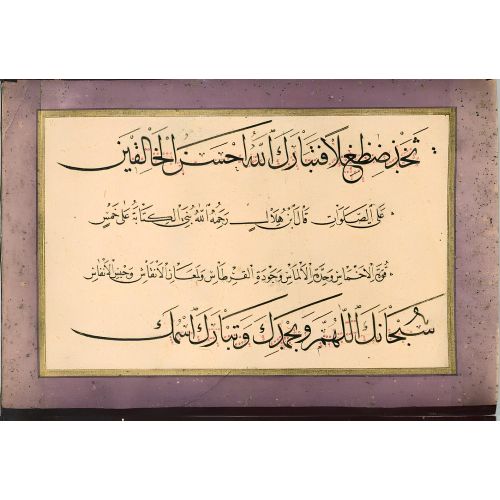 ثخذ ضظغلا فتبارك الله احسن الخالقين
على الصلوات قال ابن هلال رحمه الله بني الكتابة على خمس
قوة الاخماس وحدة الالماس وجودة القرطاس ولمعان الانقاس وحبس الانفاس
سبحانك اللهم وبحمدك وتبارك اسمك